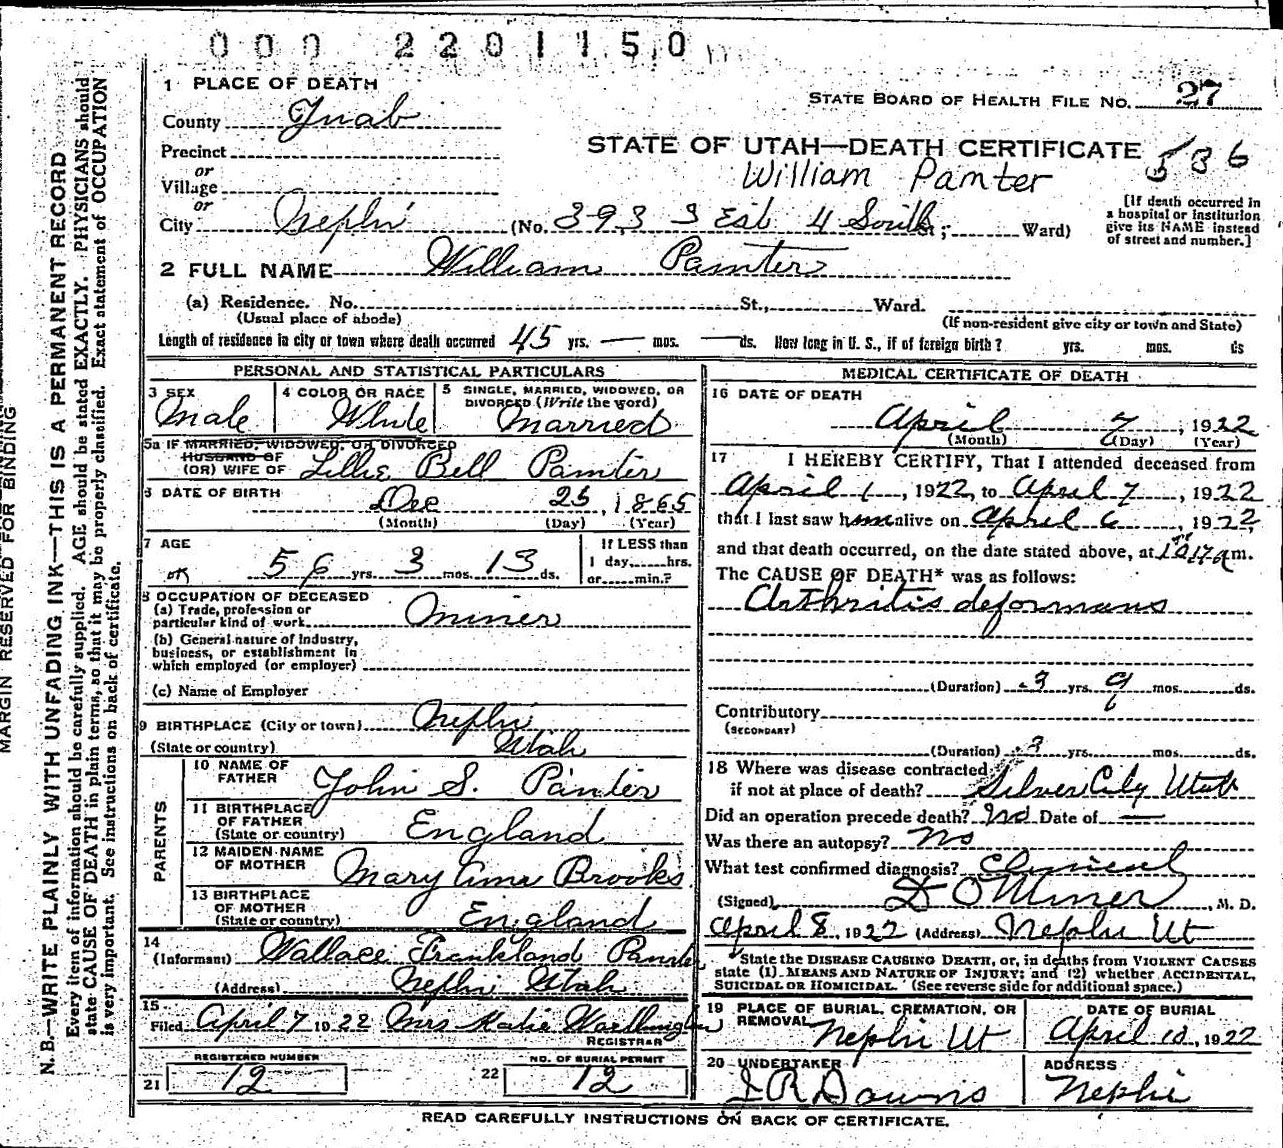 000 2201150
1 PLACE OF DEATH
STATE BOARD OF HEALTH FILE NO. 27
County Juab
STATE OF UTAH—DEATH CERTIFICATE 586
Precinct
or
William Painter
Village
or
[If death occurred in
a hospital or institution
give its NAME instead
of street and number.]
City Nephi (No. 393 3 East 4 South St.; Ward)
2 FULL NAME William Painter
(a) Residence. No. St., Ward.
(Usual place of abode) (If non-resident give city or town and State)
Length of residence in city or town where death occurred 45 yrs. — mos. — ds. How long in U. S., if of foreign birth? yrs. mos. ds
PERSONAL AND STATISTICAL PARTICULARS
3 SEX
Male
4 COLOR OR RACE
White
5 SINGLE, MARRIED, WIDOWED, OR
DIVORCED (Write the word)
Married
5a IF MARRIED, WIDOWED, OR DIVORCED
HUSBAND OF
(OR) WIFE OF Lillie Bell Painter
6 DATE OF BIRTH
Dec 25, 1865
(Month) (Day) (Year)
7 AGE
ok 56 yrs. 3 mos. 13 ds.
If LESS than
1 day, hrs.
or min.?
8 OCCUPATION OF DECEASED
(a) Trade, profession or
particular kind of work Miner
(b) General nature of Industry,
business, or establishment in
which employed (or employer)
(c) Name of Employer
9 BIRTHPLACE (City or town) Nephi
(State or country) Utah
PARENTS
10 NAME OF
FATHER John S. Painter
11 BIRTHPLACE
OF FATHER
(State or country) England
12 MAIDEN NAME
OF MOTHER Mary Ann Brooks
13 BIRTHPLACE
OF MOTHER
(State or country) England
14
(Informant) Wallace Frankland Painter
(Address) Nephi Utah
15
Filed April 7 1922 Mrs Katie
REGISTRAR
REGISTERED NUMBER
21 12
NO. OF BURIAL PERMIT
22 12
MEDICAL CERTIFICATE OF DEATH
16 DATE OF DEATH
April 7, 1922
(Month) (Day) (Year)
17 I HEREBY CERTIFY, That I attended deceased from
April 1, 1922, to April 7, 1922
that I last saw him alive on April 6, 1922
and that death occurred, on the date stated above, at m.
The CAUSE OF DEATH* was as follows:
Arthritis deformans
(Duration) 3 yrs. 9 mos. ds.
Contributory
(SECONDARY)
(Duration) 3 yrs. mos. ds.
18 Where was disease contracted
if not at place of death? Silver City Utah
Did an operation precede death? No Date of —
Was there an autopsy? No
What test confirmed diagnosis? Clinical
(Signed) D O Miner, M. D.
April 8, 1922 (Address) Nephi Ut
*State the DISEASE CAUSING DEATH, or, in deaths from VIOLENT CAUSES
state (1) MEANS AND NATURE OF INJURY; and (2) whether ACCIDENTAL,
SUICIDAL OR HOMICIDAL. (See reverse side for additional space.)
19 PLACE OF BURIAL, CREMATION, OR
REMOVAL Nephi Ut
DATE OF BURIAL
April 10, 1922
20 UNDERTAKER
J R Downs
ADDRESS
Nephi
READ CAREFULLY INSTRUCTIONS ON BACK OF CERTIFICATE.
MARGIN RESERVED FOR BINDING
N. B.—WRITE PLAINLY WITH UNFADING INK—THIS IS A PERMANENT RECORD
Every item of information should be carefully supplied. AGE should be stated EXACTLY. PHYSICIANS should
state CAUSE OF DEATH in plain terms, so that it may be properly classified. Exact statement of OCCUPATION
is very important. See instructions on back of certificate.